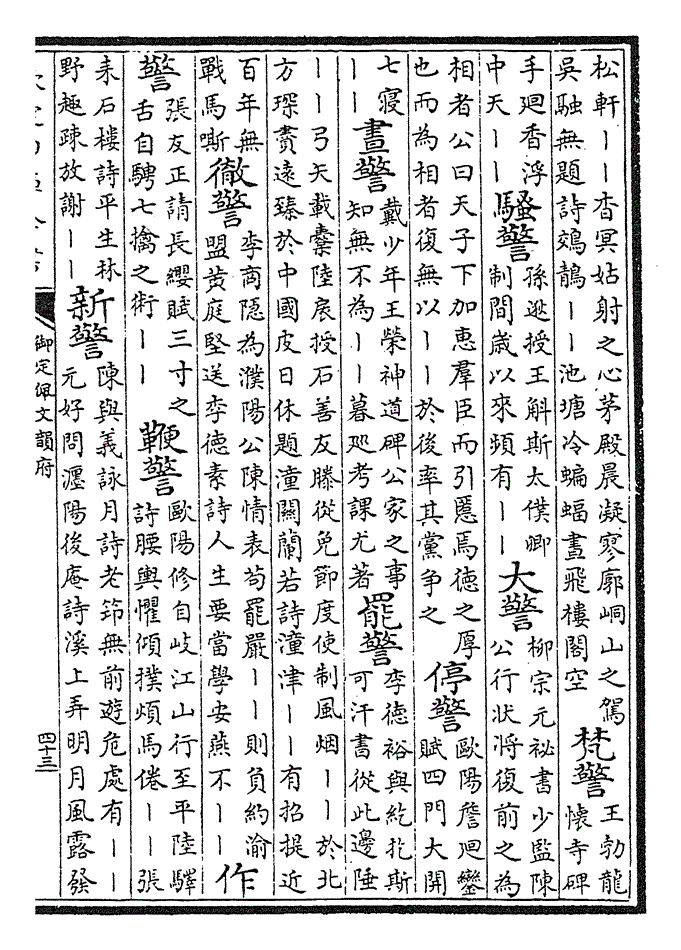 松軒——杳冥姑射之心茅殿晨凝寥廓峒山之駕
吳融無題詩鵁鶄——池塘冷蝙蝠晝飛樓閣空
梵警
王勃龍
懷寺碑
手迴香浮
中天——
騷警
孫逖授王斛斯太僕卿
制間歲以來頻有——
大警
柳宗元祕書少監陳
公行狀將復前之為
相者公曰天子下加惠羣臣而引慝焉德之厚
也而為相者復無以——於後率其黨争之
停警
歐陽詹迴鑾
賦四門大開
七寢
——
晝警
戴少年王榮神道碑公家之事
知無不為——暮廵考課尤著
罷警
李德裕與紇扢斯
可汗書從此邊陲
——弓矢載櫜陸扆授石善友滕從免節度使制風烟——於北
方琛賮遠臻於中國皮日休題潼關蘭若詩潼津——有招提近
百年無
戰馬嘶
徹警
李商隱為濮陽公陳情表苟罷嚴——則負約渝
盟黄庭堅送李德素詩人生要當學安燕不——
作
警
張友正請長纓賦三寸之
舌自騁七擒之術——
鞭警
歐陽修自岐江山行至平陸驛
詩腰輿懼傾撲煩馬倦——張
耒石樓詩平生林
野趣疎放謝——
新警
陳與義詠月詩老筇無前遊危處有——
元好問瀍陽後庵詩溪上弄明月風露發
御定佩文韻府
四十三